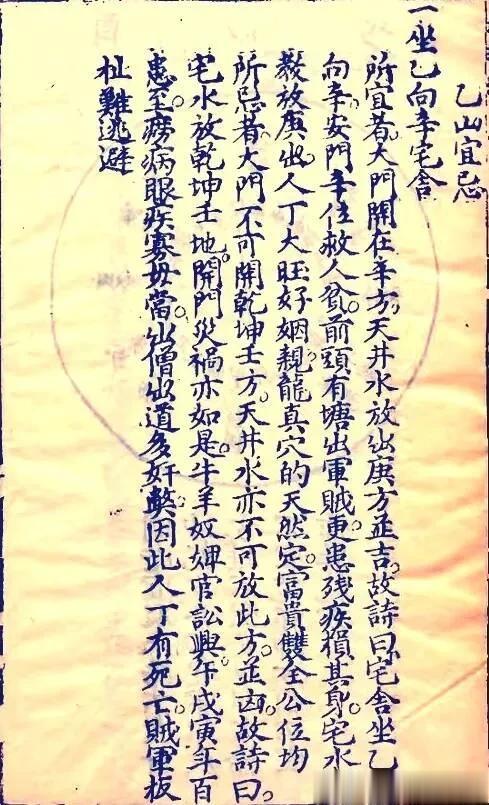 乙山宜忌
一坐乙向辛宅舍
所宜者大門開在辛方天井水放出庚方並吉故詩曰宅舍坐乙
向辛安門辛位救人貧前頭有塘出軍賊更患殘疾損其身宅水
放庚出人丁大旺好姻親龍真穴的天然定富貴雙全公位均
所忌者大門不可開乾坤壬方天井水亦不可放此方並凶故詩曰
宅水放乾坤壬地開門災禍亦如是牛羊奴婢官訟興午戌寅年百
患至癆病眼疾寡母當出僧出道多奸弊因此人丁有死亡賊軍板
杻難逃避